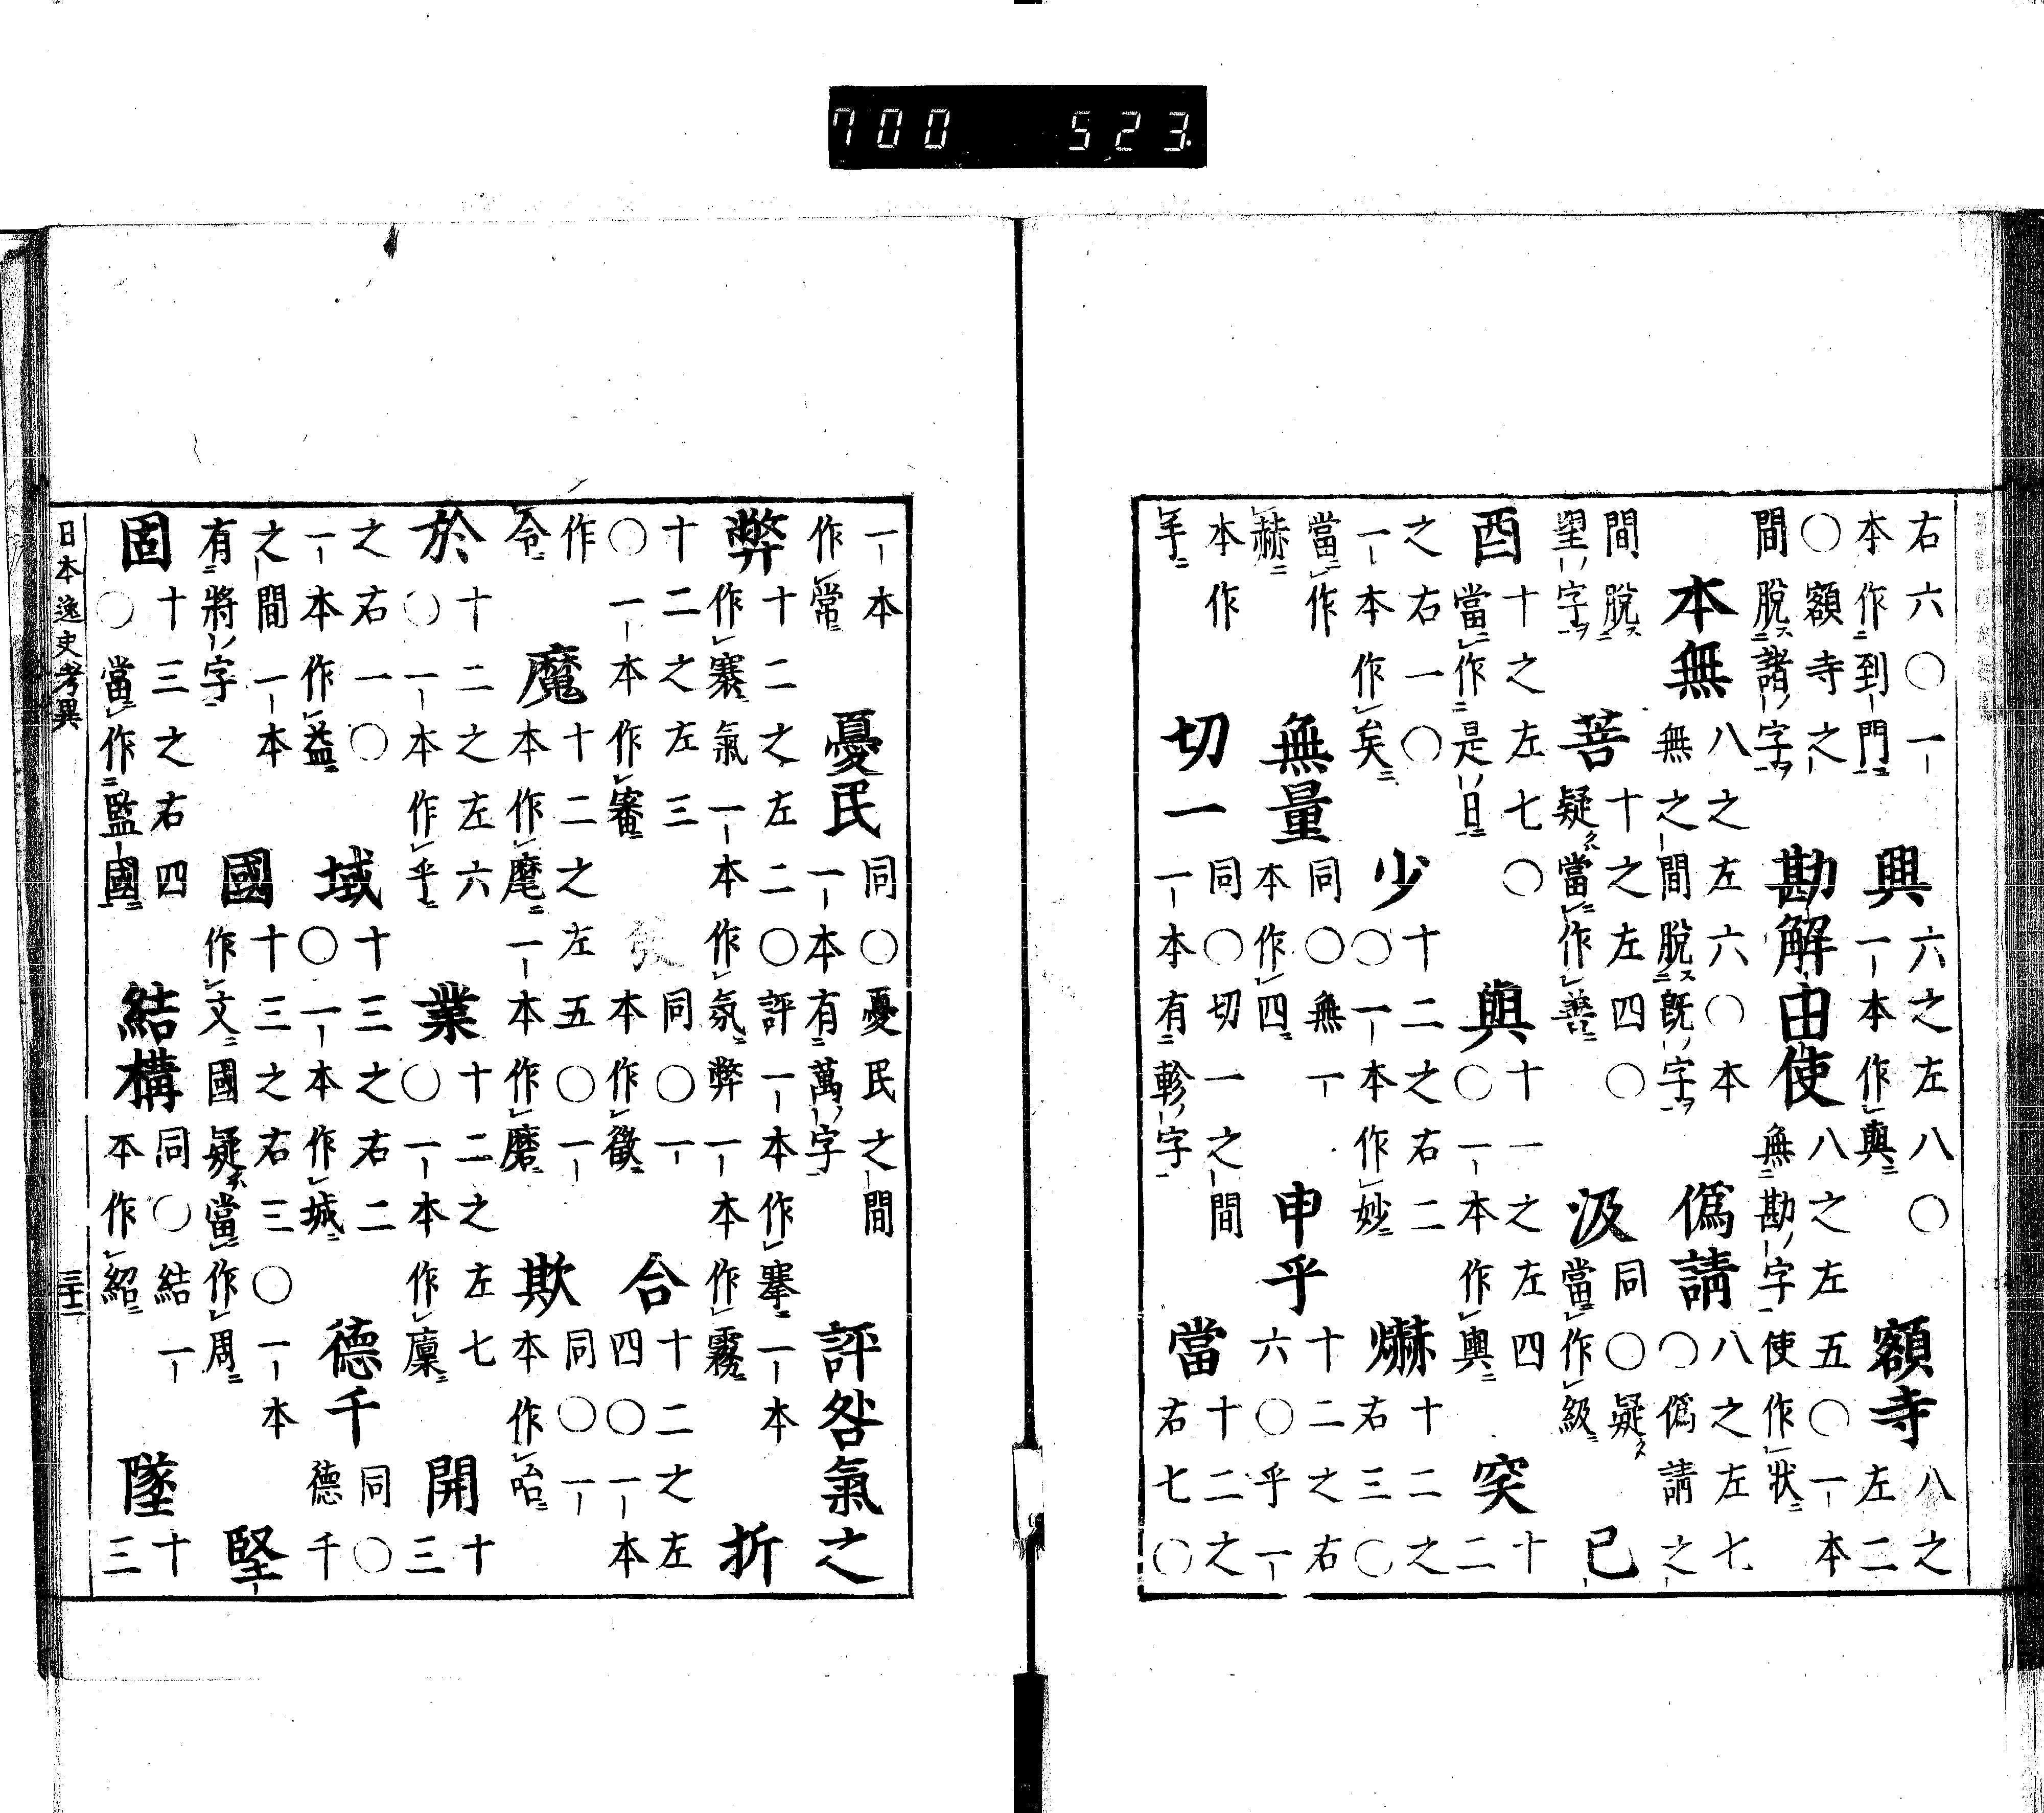 右六○一本作到門 興 六之左八○一本作輿 額寺 八之左二
○額寺之間脫諸字 勘解由使 八之左五○一本無勘字使作狀
本無 八之左六○本無之間脫既字 偽請 八之左七○偽請之
間脫望字 菩 十之左四○疑當作善 汲 同○疑當作級 已
酉 十之左七○當作是日 與 十一之左四○一本作輿 突 十二
之右一○一本作矣 少 十二之右二○一本作妙 爀 十二之右三○
當作赫 無量 同○無一本作四 申乎 十二之右六○乎一
本作手 切一 同○切一之間一本有軫字 當 十二之右七○
一本作常 憂民 同○憂民之間一本有萬字 評咎氣之
弊 十二之左二○評一本作搴一本作蹇氣一本作氛弊一本作霧 折
十二之左三○一本作審 同○一本作徵 合 十二之左四○一本
作令 魔 十二之左五○一本作麾一本作磨 欺 同○一本作咍
於 十二之左六○一本作乎 業 十二之左七○一本作廩 開 十三
之右一○一本作益 域 十三之右二○一本作城 德千 同○德千
之間一本有將字 國 十三之右三○一本作文國疑當作周 堅
固 十三之右四○當作監國 結構 同○結一本作紹 墜 十三
日本逸史考異 三十二
700 523.